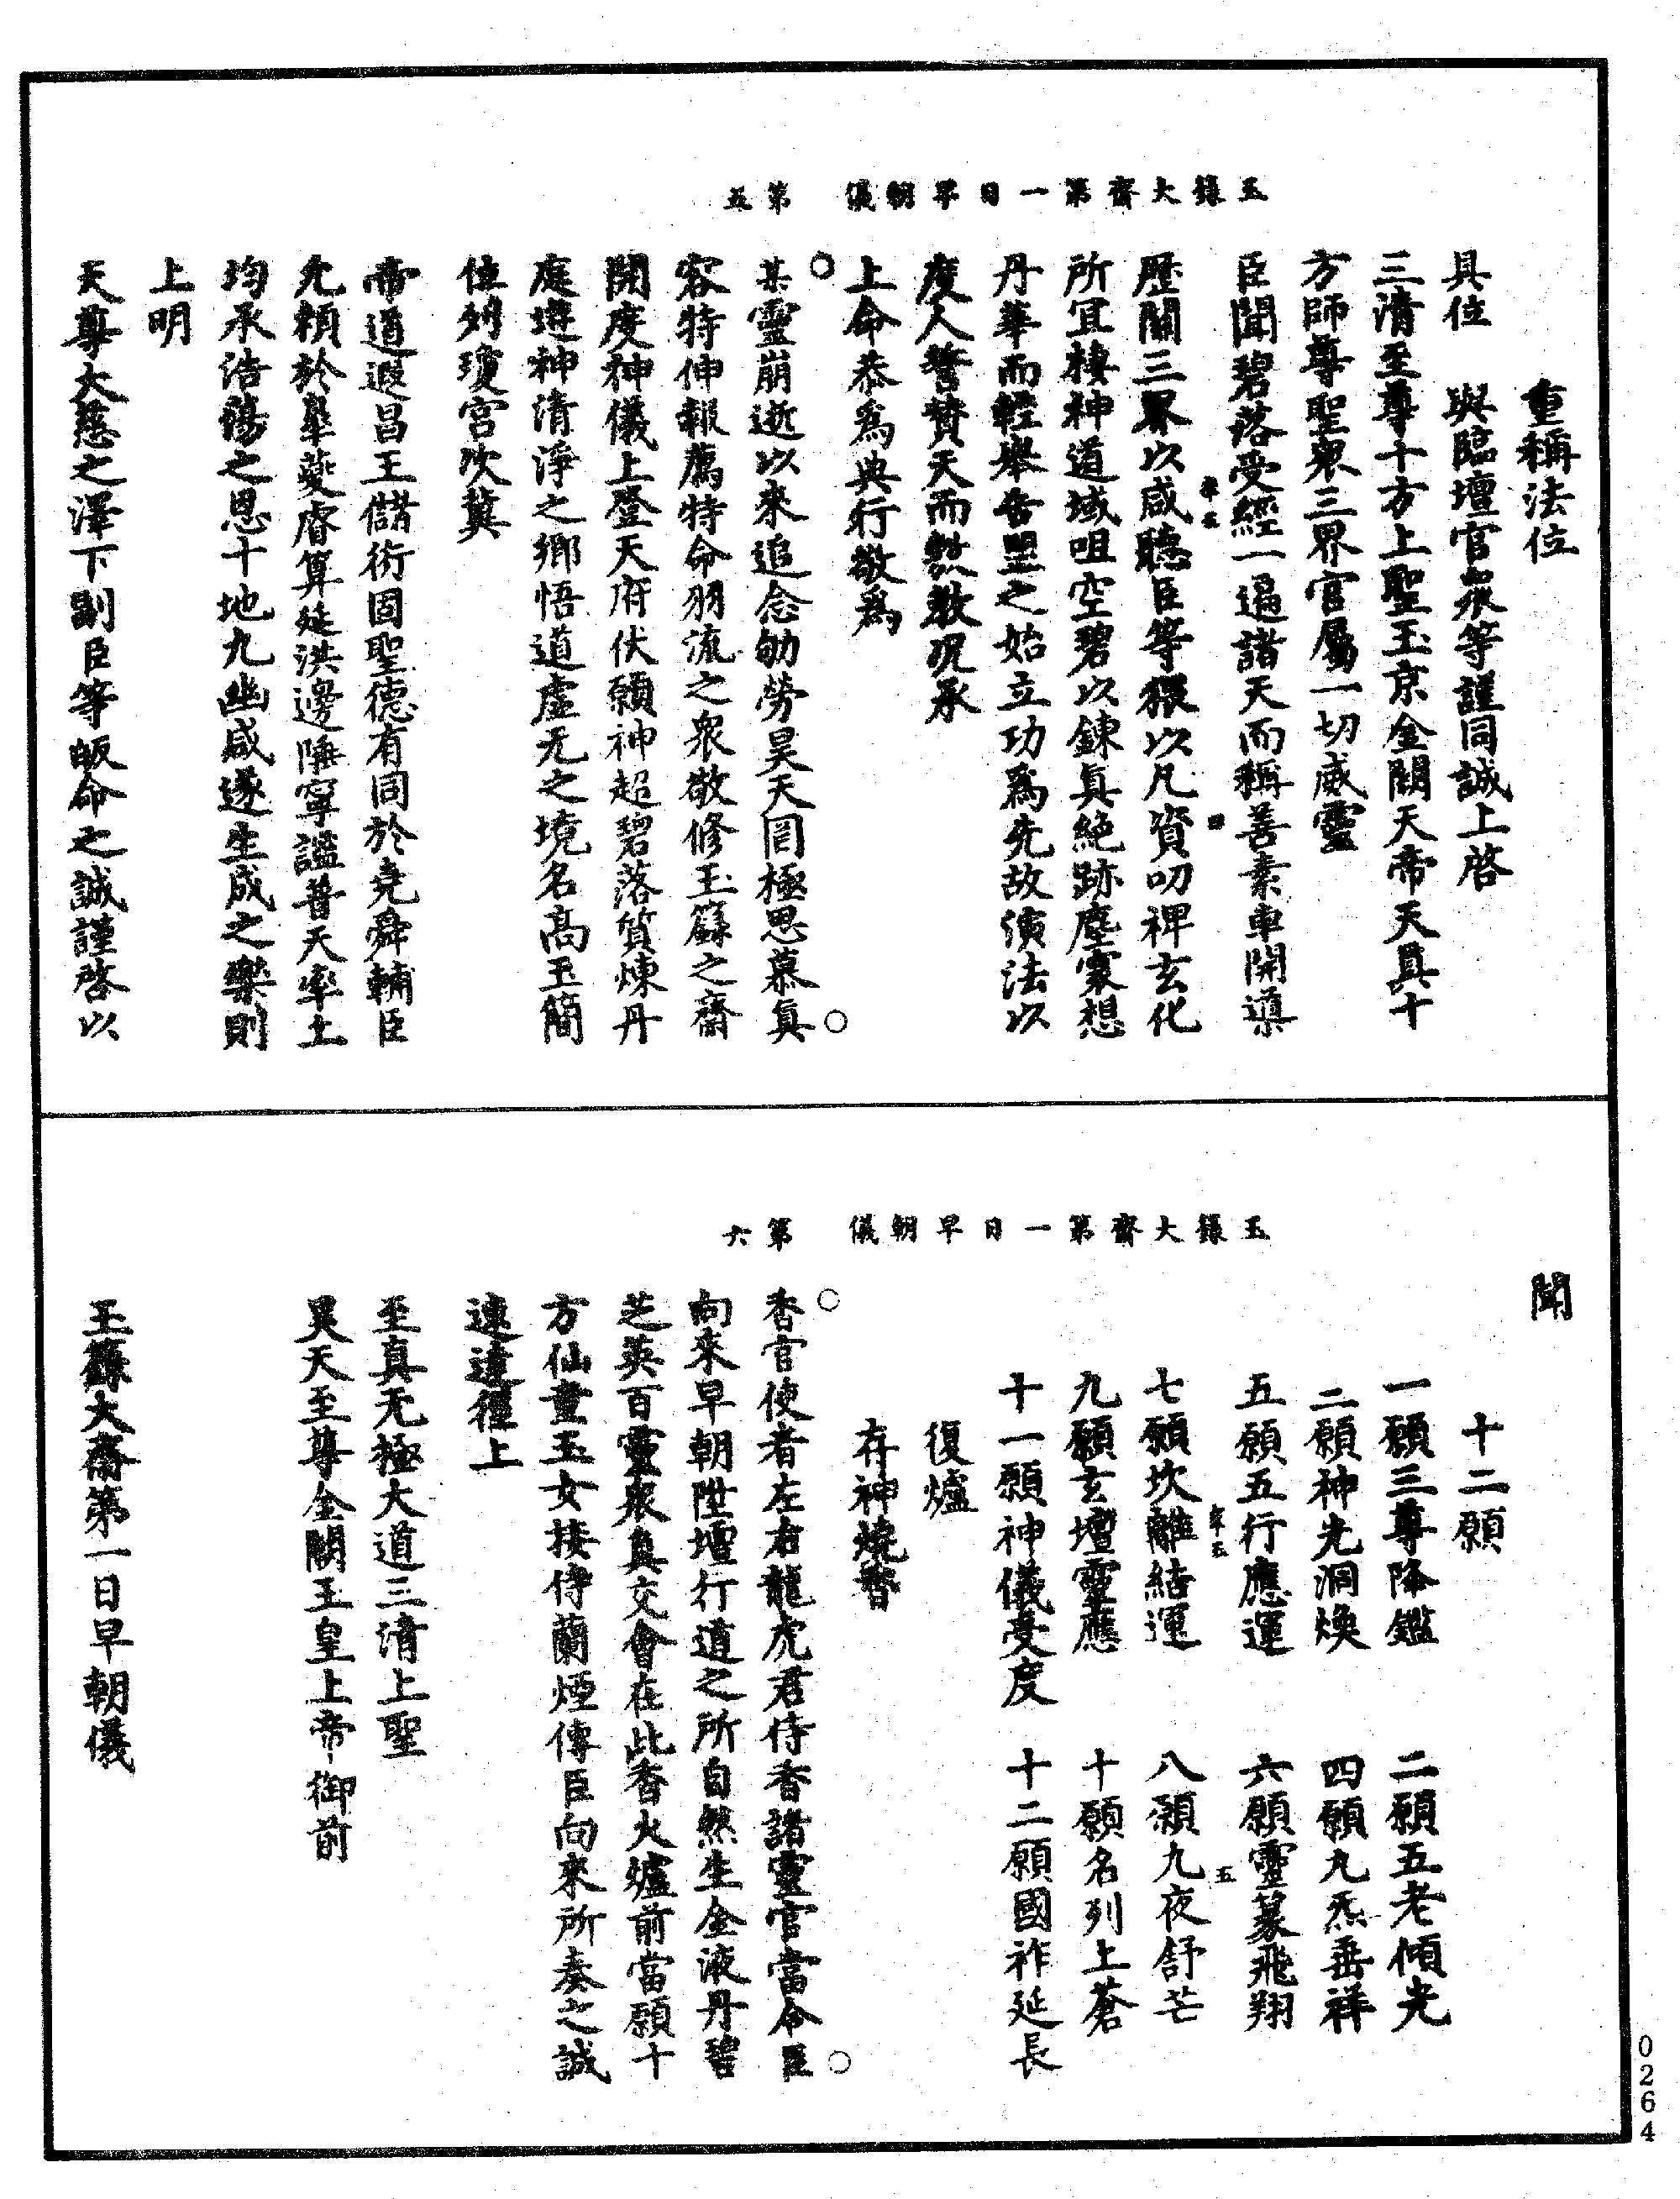 玉籙大齋第一日早朝儀　第五
重稱法位
具位　與臨壇官衆等謹同誠上啓
三清至尊十方上聖玉京金闕天帝天真十
方師尊聖衆三界官屬一切威靈
臣聞碧落受經一遍諸天而稱善素車開導
歷關三界以咸聽臣等猥以凡資叨裨玄化
所冝棲神道域咀空碧以鍊真絶跡塵寰想
丹華而輕舉告盟之始立功爲先故演法以
度人誓贊天而敷教况承
上命恭爲典行敬爲
某靈崩逝以來追念劬勞昊天罔極思慕真
容特伸報薦特命羽流之衆敬修玉籙之齋
開度神儀上登天府伏願神超碧落質煉丹
庭遊神清淨之鄉悟道虛无之境名高玉簡
位列瓊宮次冀
帝道遐昌王儲衍固聖德有同於堯舜輔臣
允賴於皐夔睿算延洪邊陲寧謐普天率土
均承浩蕩之恩十地九幽咸遂生成之樂則
上明
天尊大慈之澤下副臣等皈命之誠謹啓以
玉籙大齋第一日早朝儀　第六
聞
十二願
一願三尊降鑑　二願五老傾光
三願神光洞煥　四願九炁垂祥
五願五行應運　六願靈篆飛翔
七願坎離結運　八願九夜舒芒
九願玄壇靈應　十願名列上蒼
十一願神儀受度　十二願國祚延長
復爐
存神燒香
香官使者左右龍虎君侍香諸靈官當令臣
向來早朝陞壇行道之所自然生金液丹碧
芝英百靈衆真交會在此香火爐前當願十
方仙童玉女接侍蘭煙傳臣向來所奏之誠
速達徑上
至真无極大道三清上聖
昊天至尊金闕玉皇上帝御前
玉籙大齋第一日早朝儀
0264